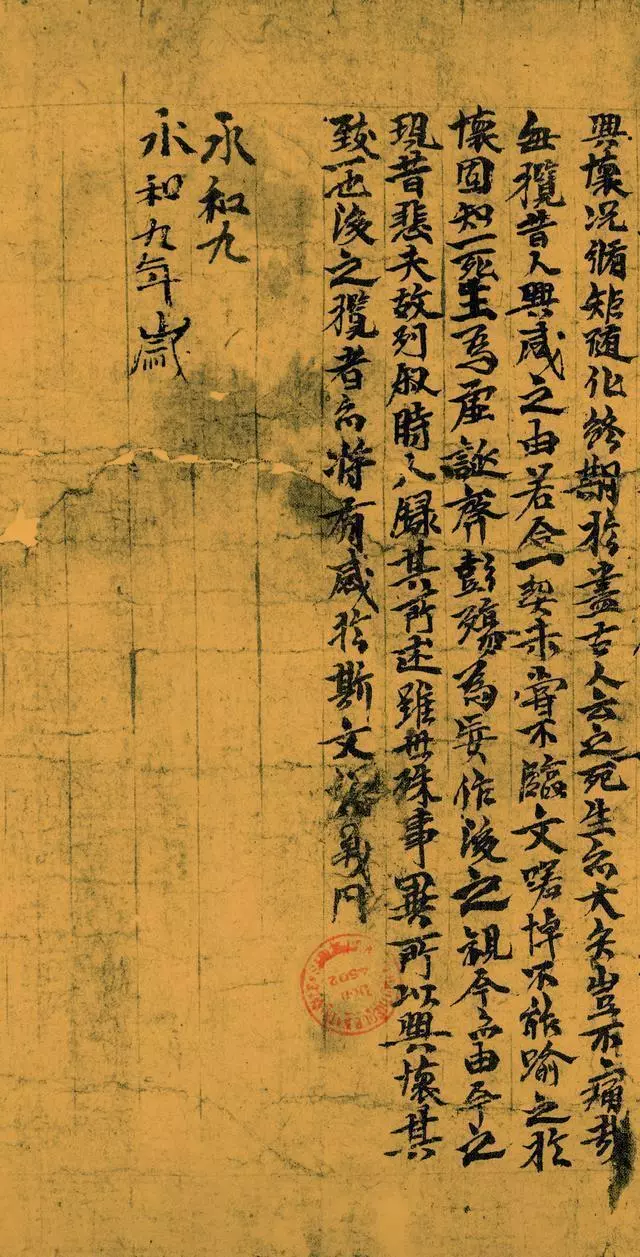 興懷況脩矩随化終期於盡古人云之死生亦大矣豈不痛哉
每攬昔人興感之由若合一契未嘗不臨文嗟悼不能喻之於
懷固知一死生為虛誕齊彭殤為妄作後之視今亦由今之
視昔悲夫故列叙時人録其所述雖世殊事異所以興懷其
致一也後之攬者亦将有感於斯文
永和九
永和九年歲